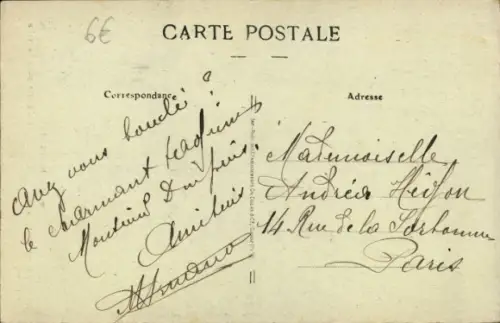 6€
CARTE POSTALE
Correspondance
Adresse
Avez vous boudé?
le charmant
Monsieur Dupuis.
Amitiés
Mademoiselle
Andréa
14 Rue de la Sorbonne
Paris